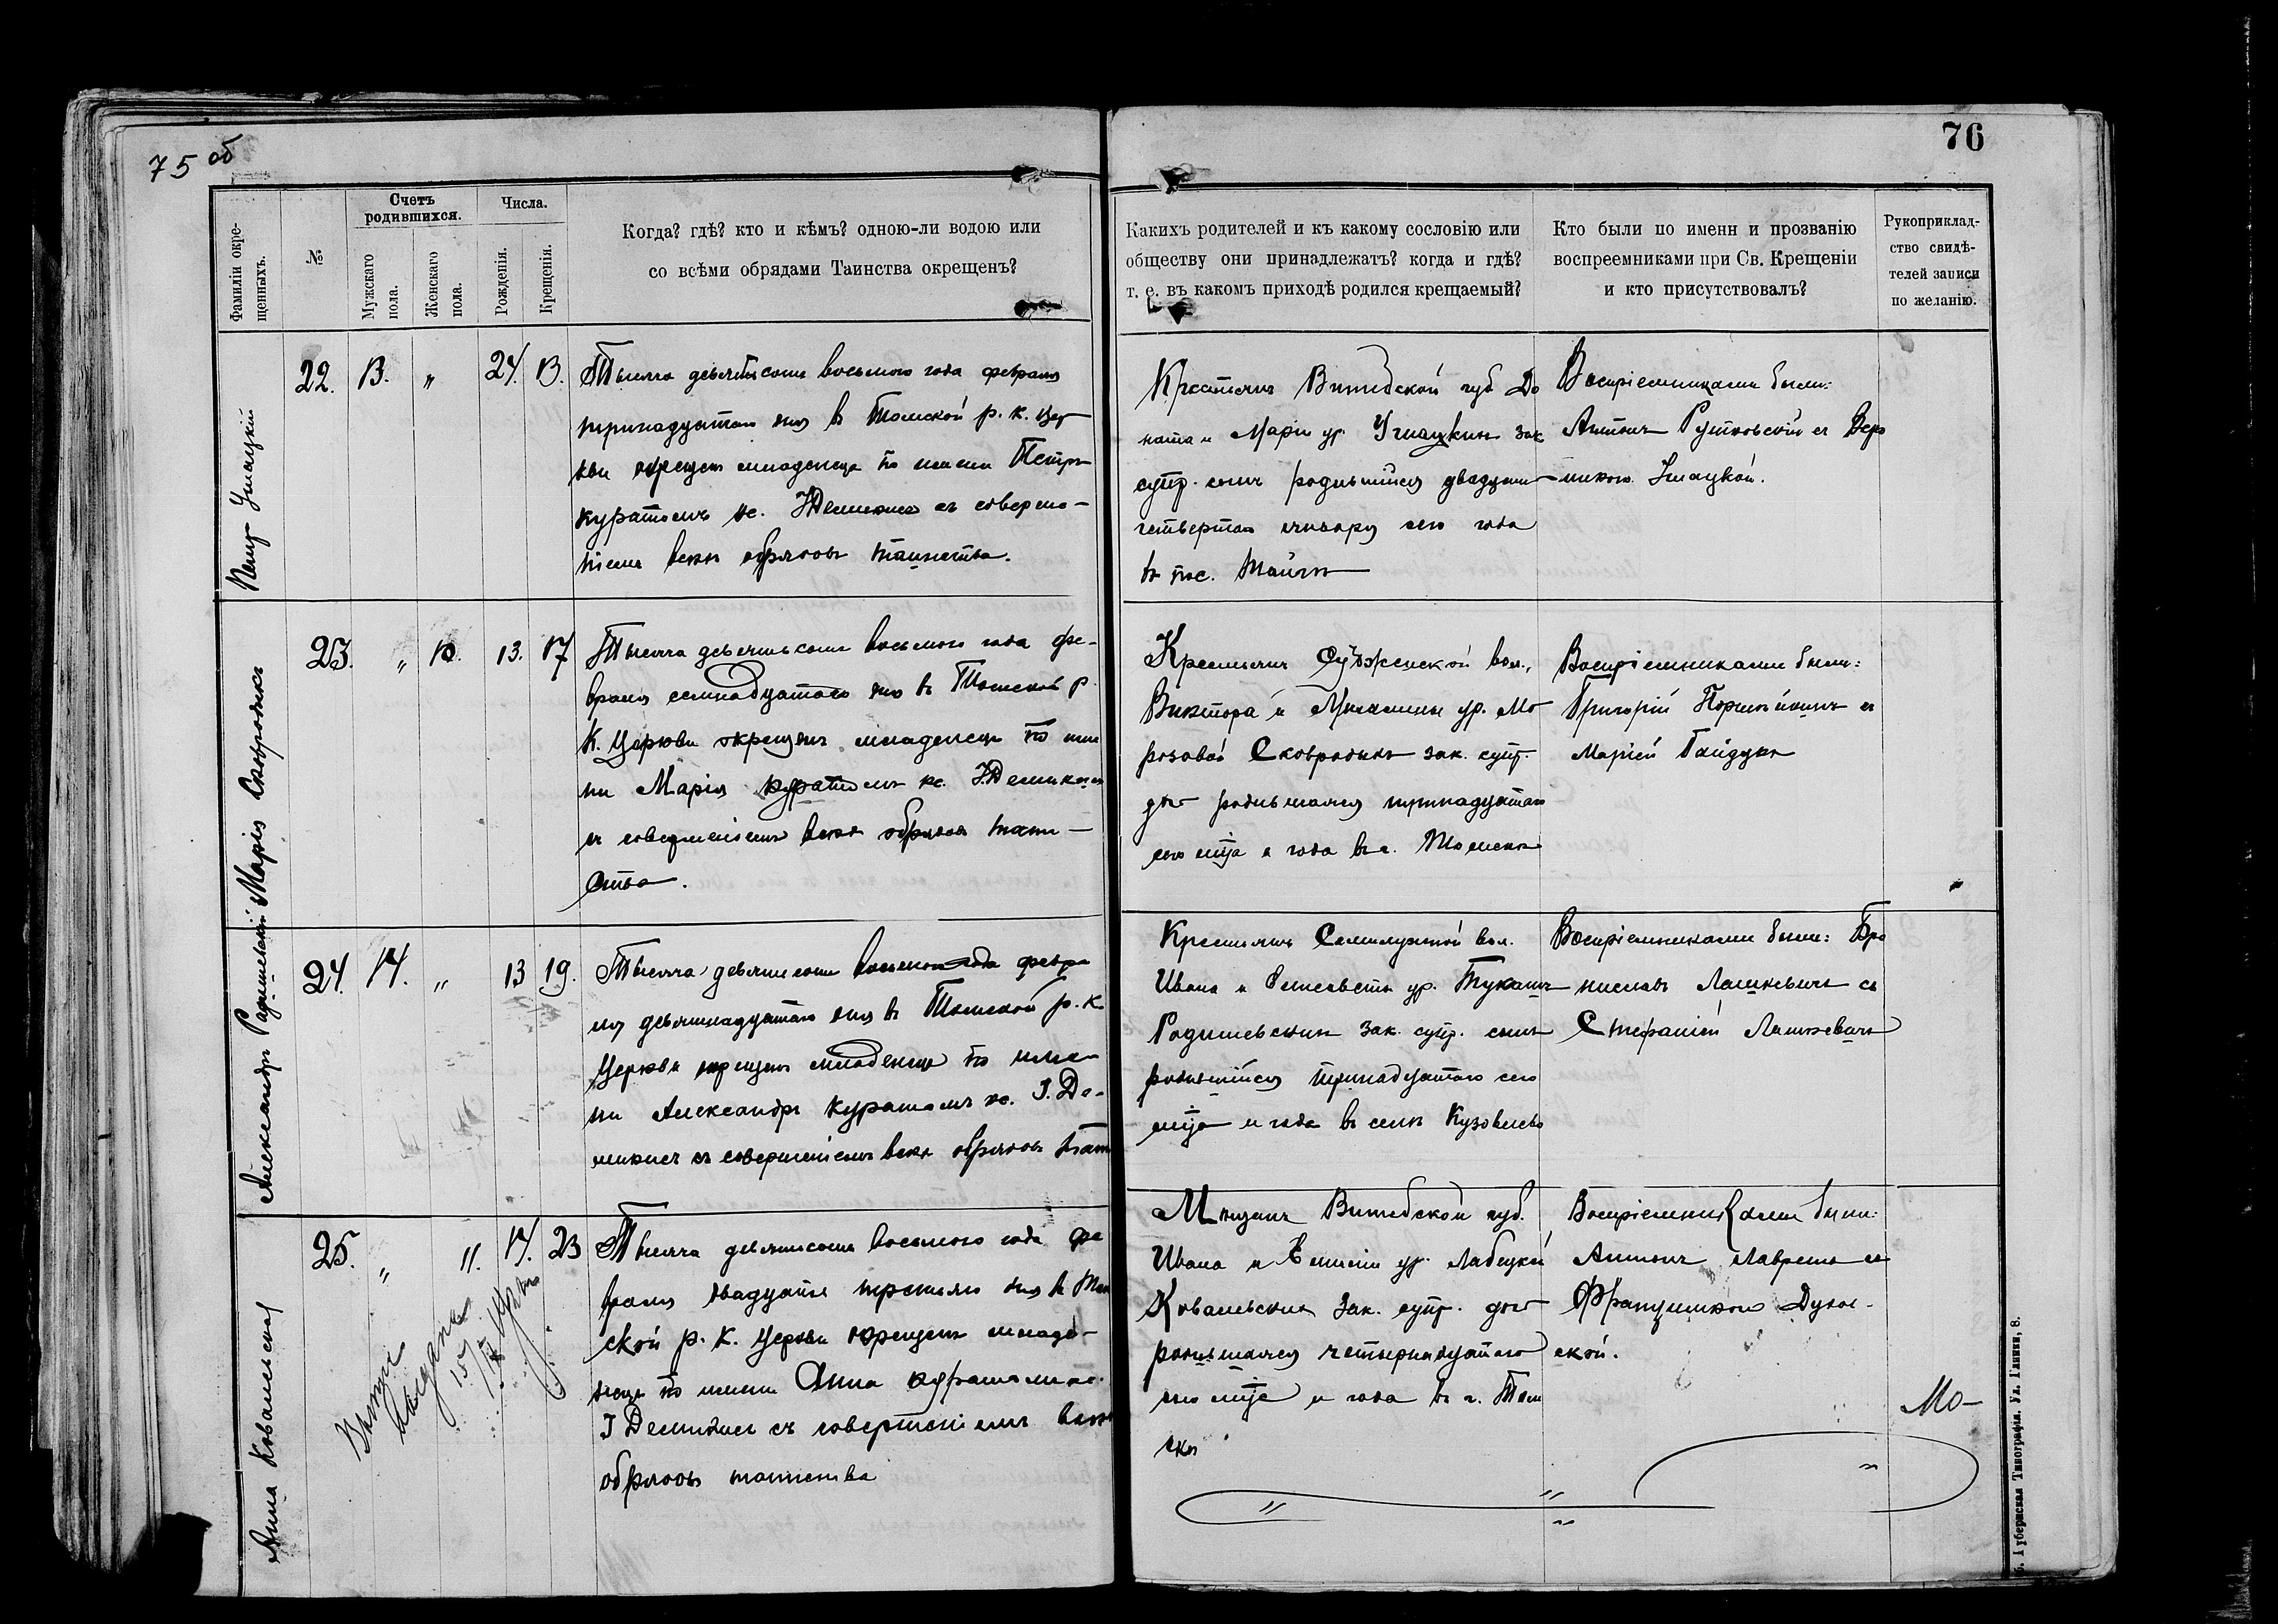 75 об
76
Фамиліи окрещенныхъ.
№
Счетъ родившихся.
Мужскаго пола.
Женскаго пола.
Числа.
Рожденія.
Крещенія.
Когда? гдѣ? кто и кѣмъ? одною-ли водою или
со всѣми обрядами Таинства окрещенъ?
Каихъ родителей и къ какому сословію или
обществу они принадлежатъ? когда и гдѣ?
т. е. въ какомъ приходѣ родился крещаемый?
Кто были по имени и прозванію
воспреемниками при Св. Крещеніи
и кто присутствовалъ?
Рукоприклад-
ство свидѣ-
телей записи
по желанію.
Петръ
22. 13. „ 24. 13.
Тысяча девятьсотъ восьмого года февраля
тринадцатаго дня въ Томской р. к. Цер
кви окрещенъ младенецъ по имени Петръ
куратомъ кс. Демикисъ съ соверше-
ніемъ всѣхъ обрядовъ таинства.
Крестьянъ Витебской губ До
ната и Маріи ур.
супр. сынъ родившійся двадцать
четвертаго января сего года
въ пос. Тайгѣ
Воспріемниками были:
Антонъ Рутковскій съ Веро
никою
Марія Сковродикъ
23. „ 10. 13. 17
Тысяча девятьсотъ восьмого года фе-
враля семнадцатаго дня въ Томской р
К. Церкви окрещенъ младенецъ по име
ни Марія куратомъ кс. І. Демикисъ
съ совершеніемъ всѣхъ обрядовъ таин-
ства.
Крестьянъ Судженской вол.,
Виктора и ур. Мо
розовой Сковродикъ зак. супр.
дочь родившаяся тринадцатаго
сего м-ца и года въ г. Томскѣ
Воспріемниками были:
Григорій съ
Маріей Гайдукъ
Александръ Радишевскій
24. 14. „ 13 19.
Тысяча девятьсотъ восьмого года февра
ля девятнадцатаго дня въ Томской р. к.
Церкви окрещенъ младенецъ по име-
ни Александръ куратомъ кс. І. Де-
микисъ съ совершеніемъ всѣхъ обрядовъ таин
Крестьянъ Семилужной вол.
Ивана и Елисаветы ур.
Радишевскихъ зак. супр. сынъ
родившійся тринадцатаго сего
м-ца и года въ селѣ Кузовлево
Воспріемниками были: Бро
ниславъ Лашкевичъ съ
Стефаніей Лашкевичъ
Анна Ковальская
25. „ 11. 14. 23
Тысяча девятьсотъ восьмого года фе
враля двадцать третьяго дня въ Том
ской р. К. Церкви окрещенъ младе-
нецъ по имени Анна куратомъ кс.
І Демикисъ съ совершеніемъ всѣхъ
обрядовъ таинства
Мѣщанъ Витебской губ.
Ивана и ур. Лабецкой
Ковальскихъ зак. супр. дочь
родившаяся четырнадцатаго
сего м-ца и года въ г. Том
скѣ
Воспріемниками были:
Антонъ съ
Францишкою
ской.
Мо-
Губернская Типографія.